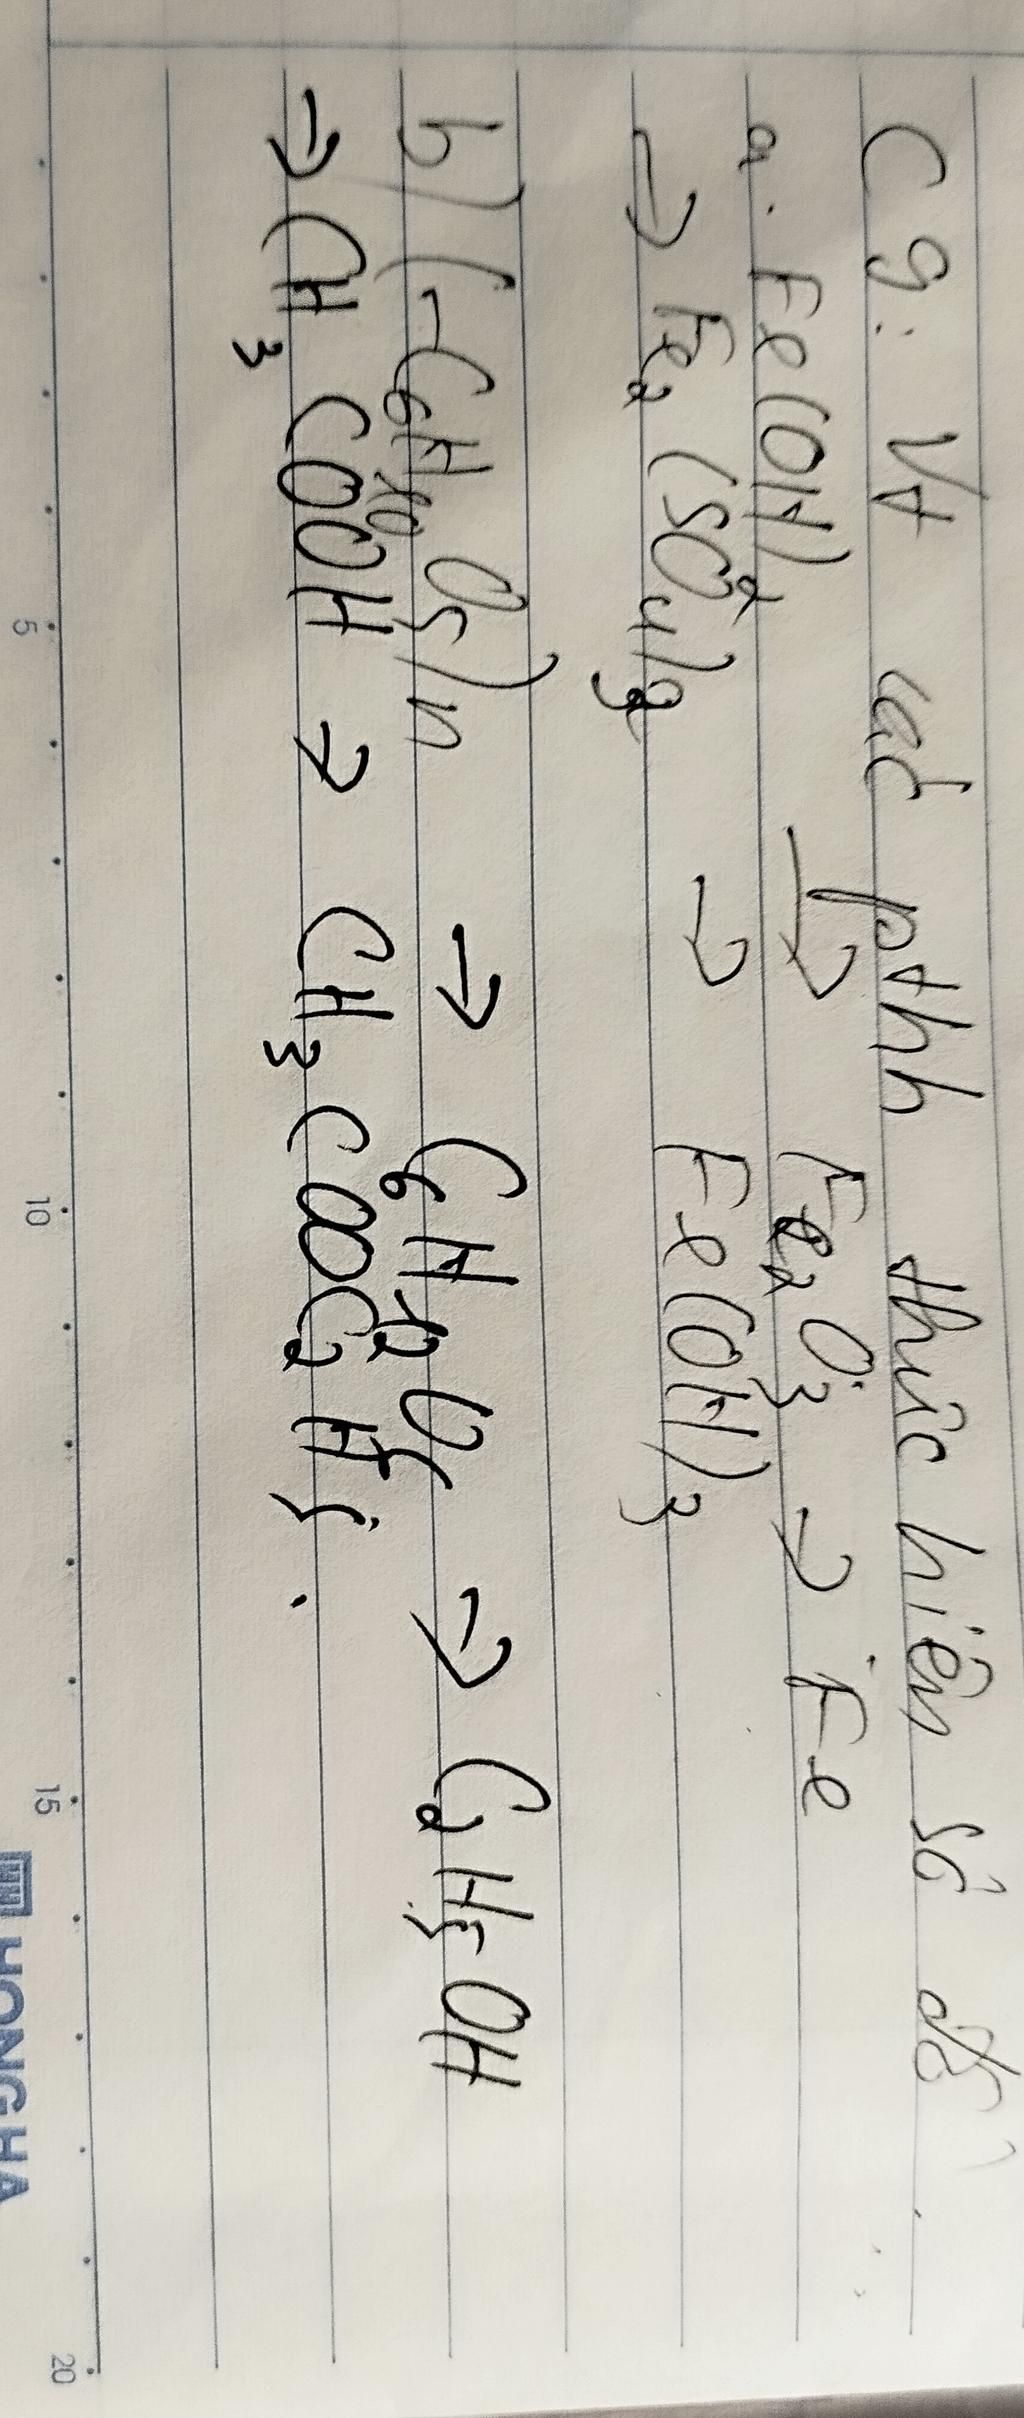 C9: Vt các pthh thực hiện sơ đồ
a. Fe(OH)2 → Fe2O3 → Fe
→ Fe2(SO4)3 → Fe(OH)3
b) (-C6H10O5)n → C6H12O6 → C2H5OH
→ CH3COOH → CH3COOC2H5.
5 10 15 20
HONG HA